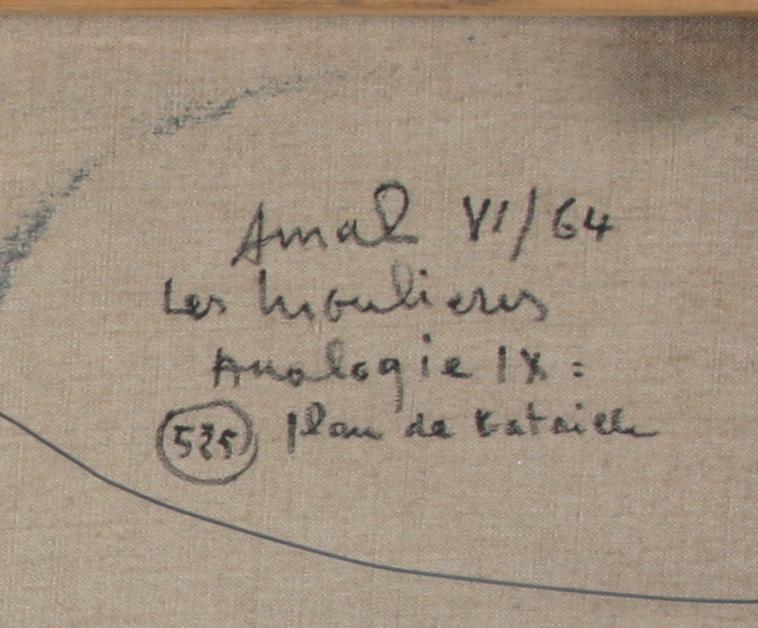 Amal VI/64
Les Moulieres
Analogie IX :
525 Plan de bataille